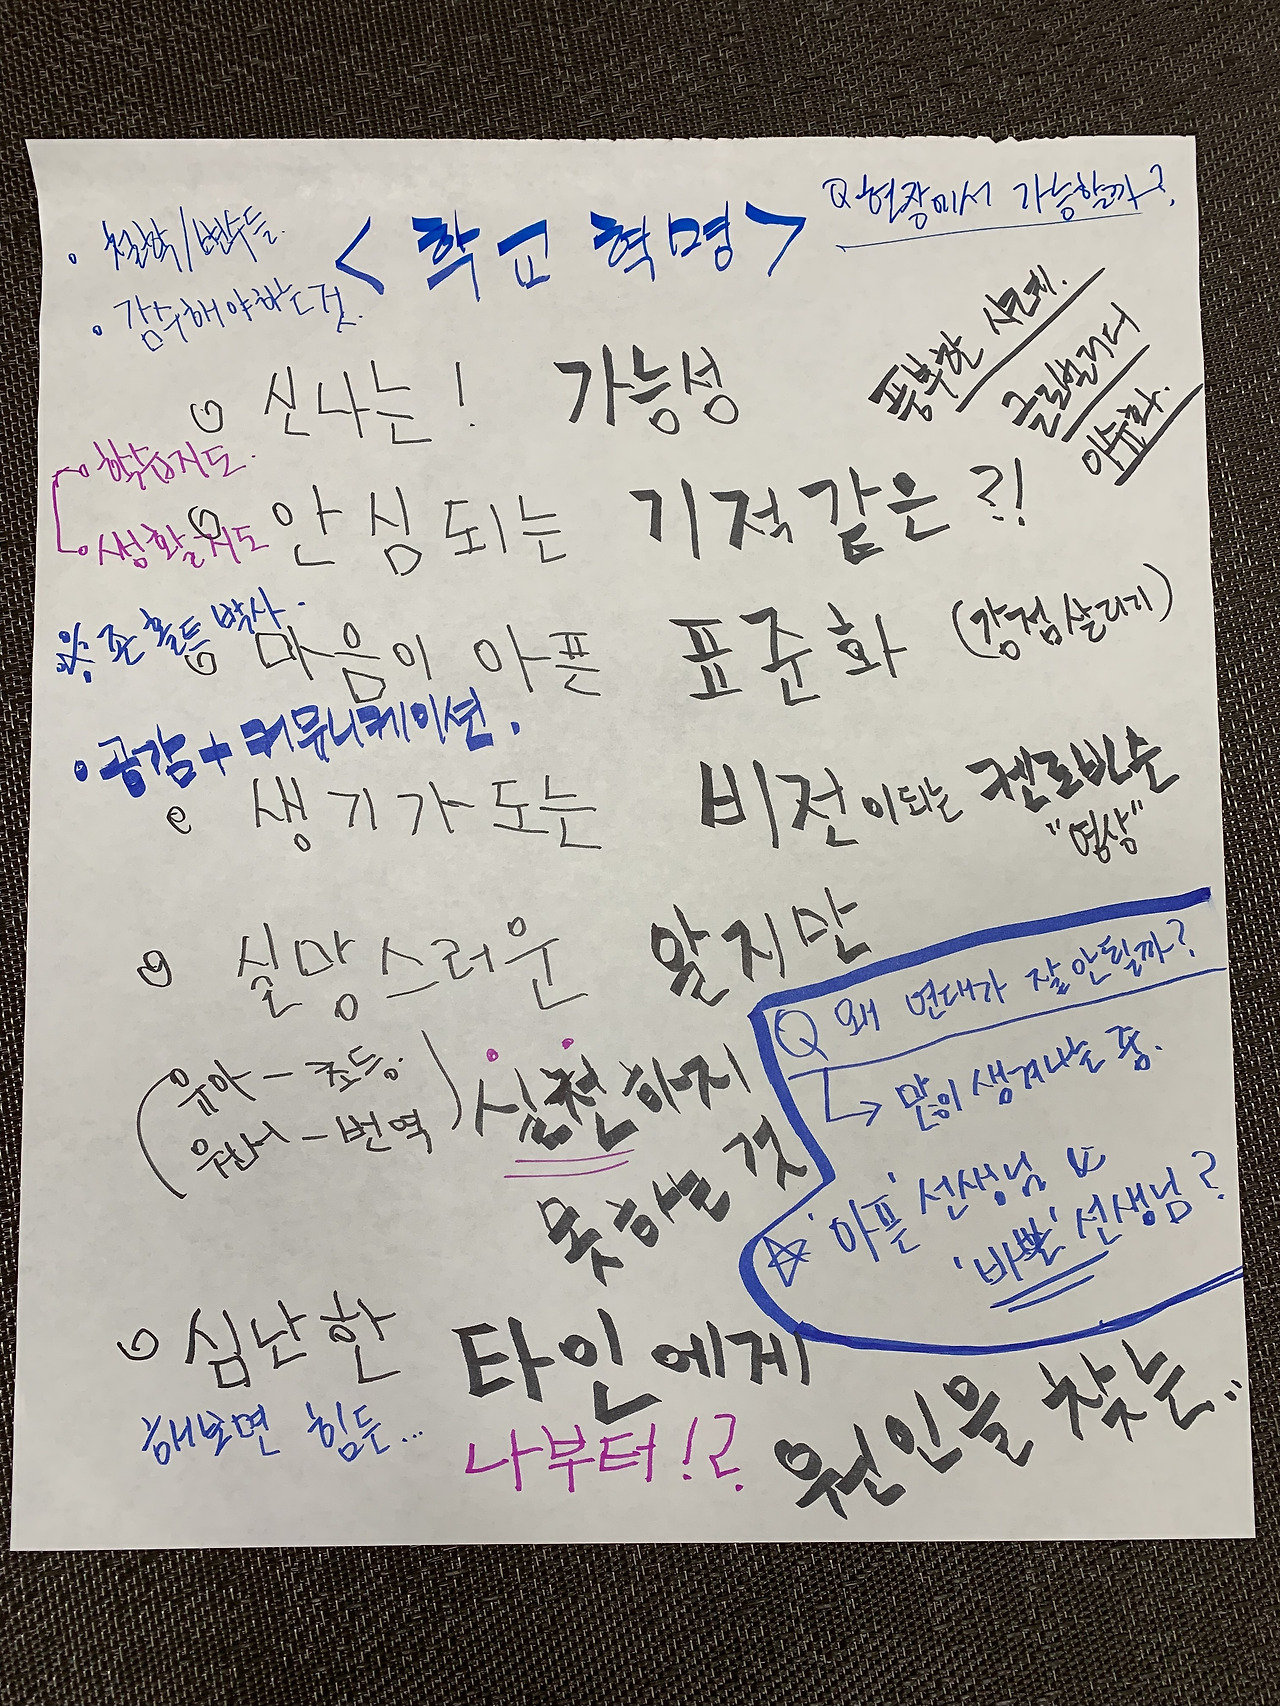 <학교 혁명>
Q 현장에서 가능할까?
• 철학/변수들.
• 감수해야하는것.
풍부한 사례.
클린벌리더
이슈화.
신나는! 가능성
학습지도.
생활지도
안심되는 기적같은?!
※ 존 홀트 박사.
마음이 아픈 표준화 (강점살리기)
• 공감+커뮤니케이션.
생기가 도는 비전이되는 켄로빈슨
"영상"
실망스러운 알지만
실천하지
못하는 것
(유아-초등.
원서-번역)
Q 왜 연대가 잘안될까?
↳ 많이 생겨나는 중.
☆ '아픈' 선생님 vs
'바쁜' 선생님?
심난한 타인에게
원인을 찾는..
해보면 힘든...
나부터!?